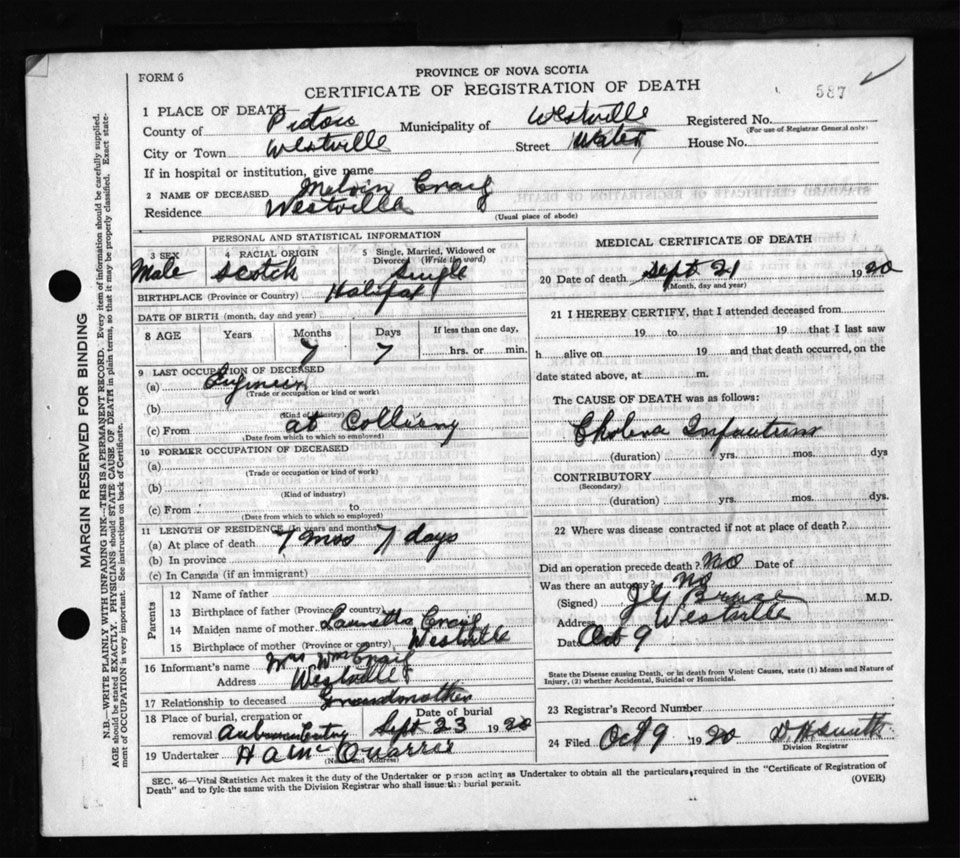 PROVINCE OF NOVA SCOTIA
FORM 6
CERTIFICATE OF REGISTRATION OF DEATH
587
1 PLACE OF DEATH—
County of Pictou Municipality of Westville Registered No.
(For use of Registrar General only)
City or Town Westville Street Water House No.
If in hospital or institution, give name
2 NAME OF DECEASED Melvin Craig
Residence Westville (Usual place of abode)
PERSONAL AND STATISTICAL INFORMATION
3 SEX 4 RACIAL ORIGIN 5 Single, Married, Widowed or Divorced (Write the word)
Male Scotch Single
BIRTHPLACE (Province or Country) Halifax
DATE OF BIRTH (month, day and year)
8 AGE Years Months Days If less than one day,
7 7 hrs. or min.
9 LAST OCCUPATION OF DECEASED
(a) Engineer
(Trade or occupation or kind of work)
(b)
(Kind of industry)
(c) From at Colliery
(Date from which to which so employed)
10 FORMER OCCUPATION OF DECEASED
(a)
(Trade or occupation or kind of work)
(b)
(Kind of industry)
(c) From to
(Date from which to which so employed)
11 LENGTH OF RESIDENCE (In years and months)
(a) At place of death 7 mos 7 days
(b) In province
(c) In Canada (if an immigrant)
Parents
12 Name of father
13 Birthplace of father (Province or country)
14 Maiden name of mother Lauretta Craig
15 Birthplace of mother (Province or country) Westville
16 Informant's name Mrs Wm Craig
Address Westville
17 Relationship to deceased Grandmother
18 Place of burial, cremation or removal Date of burial
Sept 23 1920
19 Undertaker H A Mc Quarrie
(Name and Address)
MEDICAL CERTIFICATE OF DEATH
20 Date of death Sept 21 1920
(Month, day and year)
21 I HEREBY CERTIFY, that I attended deceased from
19 to 19 that I last saw
h alive on 19 and that death occurred, on the
date stated above, at m.
The CAUSE OF DEATH was as follows:
Cholera Infantum
(duration) yrs. mos. dys
CONTRIBUTORY
(Secondary)
(duration) yrs. mos. dys.
22 Where was disease contracted if not at place of death?
Did an operation precede death? No Date of
Was there an autopsy? No
(Signed) M.D.
Address Westville
Date Oct 9
State the Disease causing Death, or in death from Violent Causes, state (1) Means and Nature of
Injury, (2) whether Accidental, Suicidal or Homicidal.
23 Registrar's Record Number
24 Filed Oct 9 1920
Division Registrar
SEC. 46—Vital Statistics Act makes it the duty of the Undertaker or person acting as Undertaker to obtain all the particulars required in the "Certificate of Registration of
Death" and to fyle the same with the Division Registrar who shall issue the burial permit. (OVER)
MARGIN RESERVED FOR BINDING
N.B.—WRITE PLAINLY WITH UNFADING INK—THIS IS A PERMANENT RECORD. Every item of information should be carefully supplied.
AGE should be stated EXACTLY. PHYSICIANS should STATE CAUSE OF DEATH in plain terms, so that it may be properly classified. Exact state-
ment of OCCUPATION is very important. See instructions on back of Certificate.